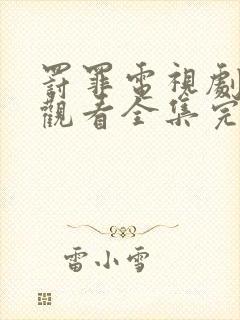 罰罪電視劇
觀看全集完
雷小雪